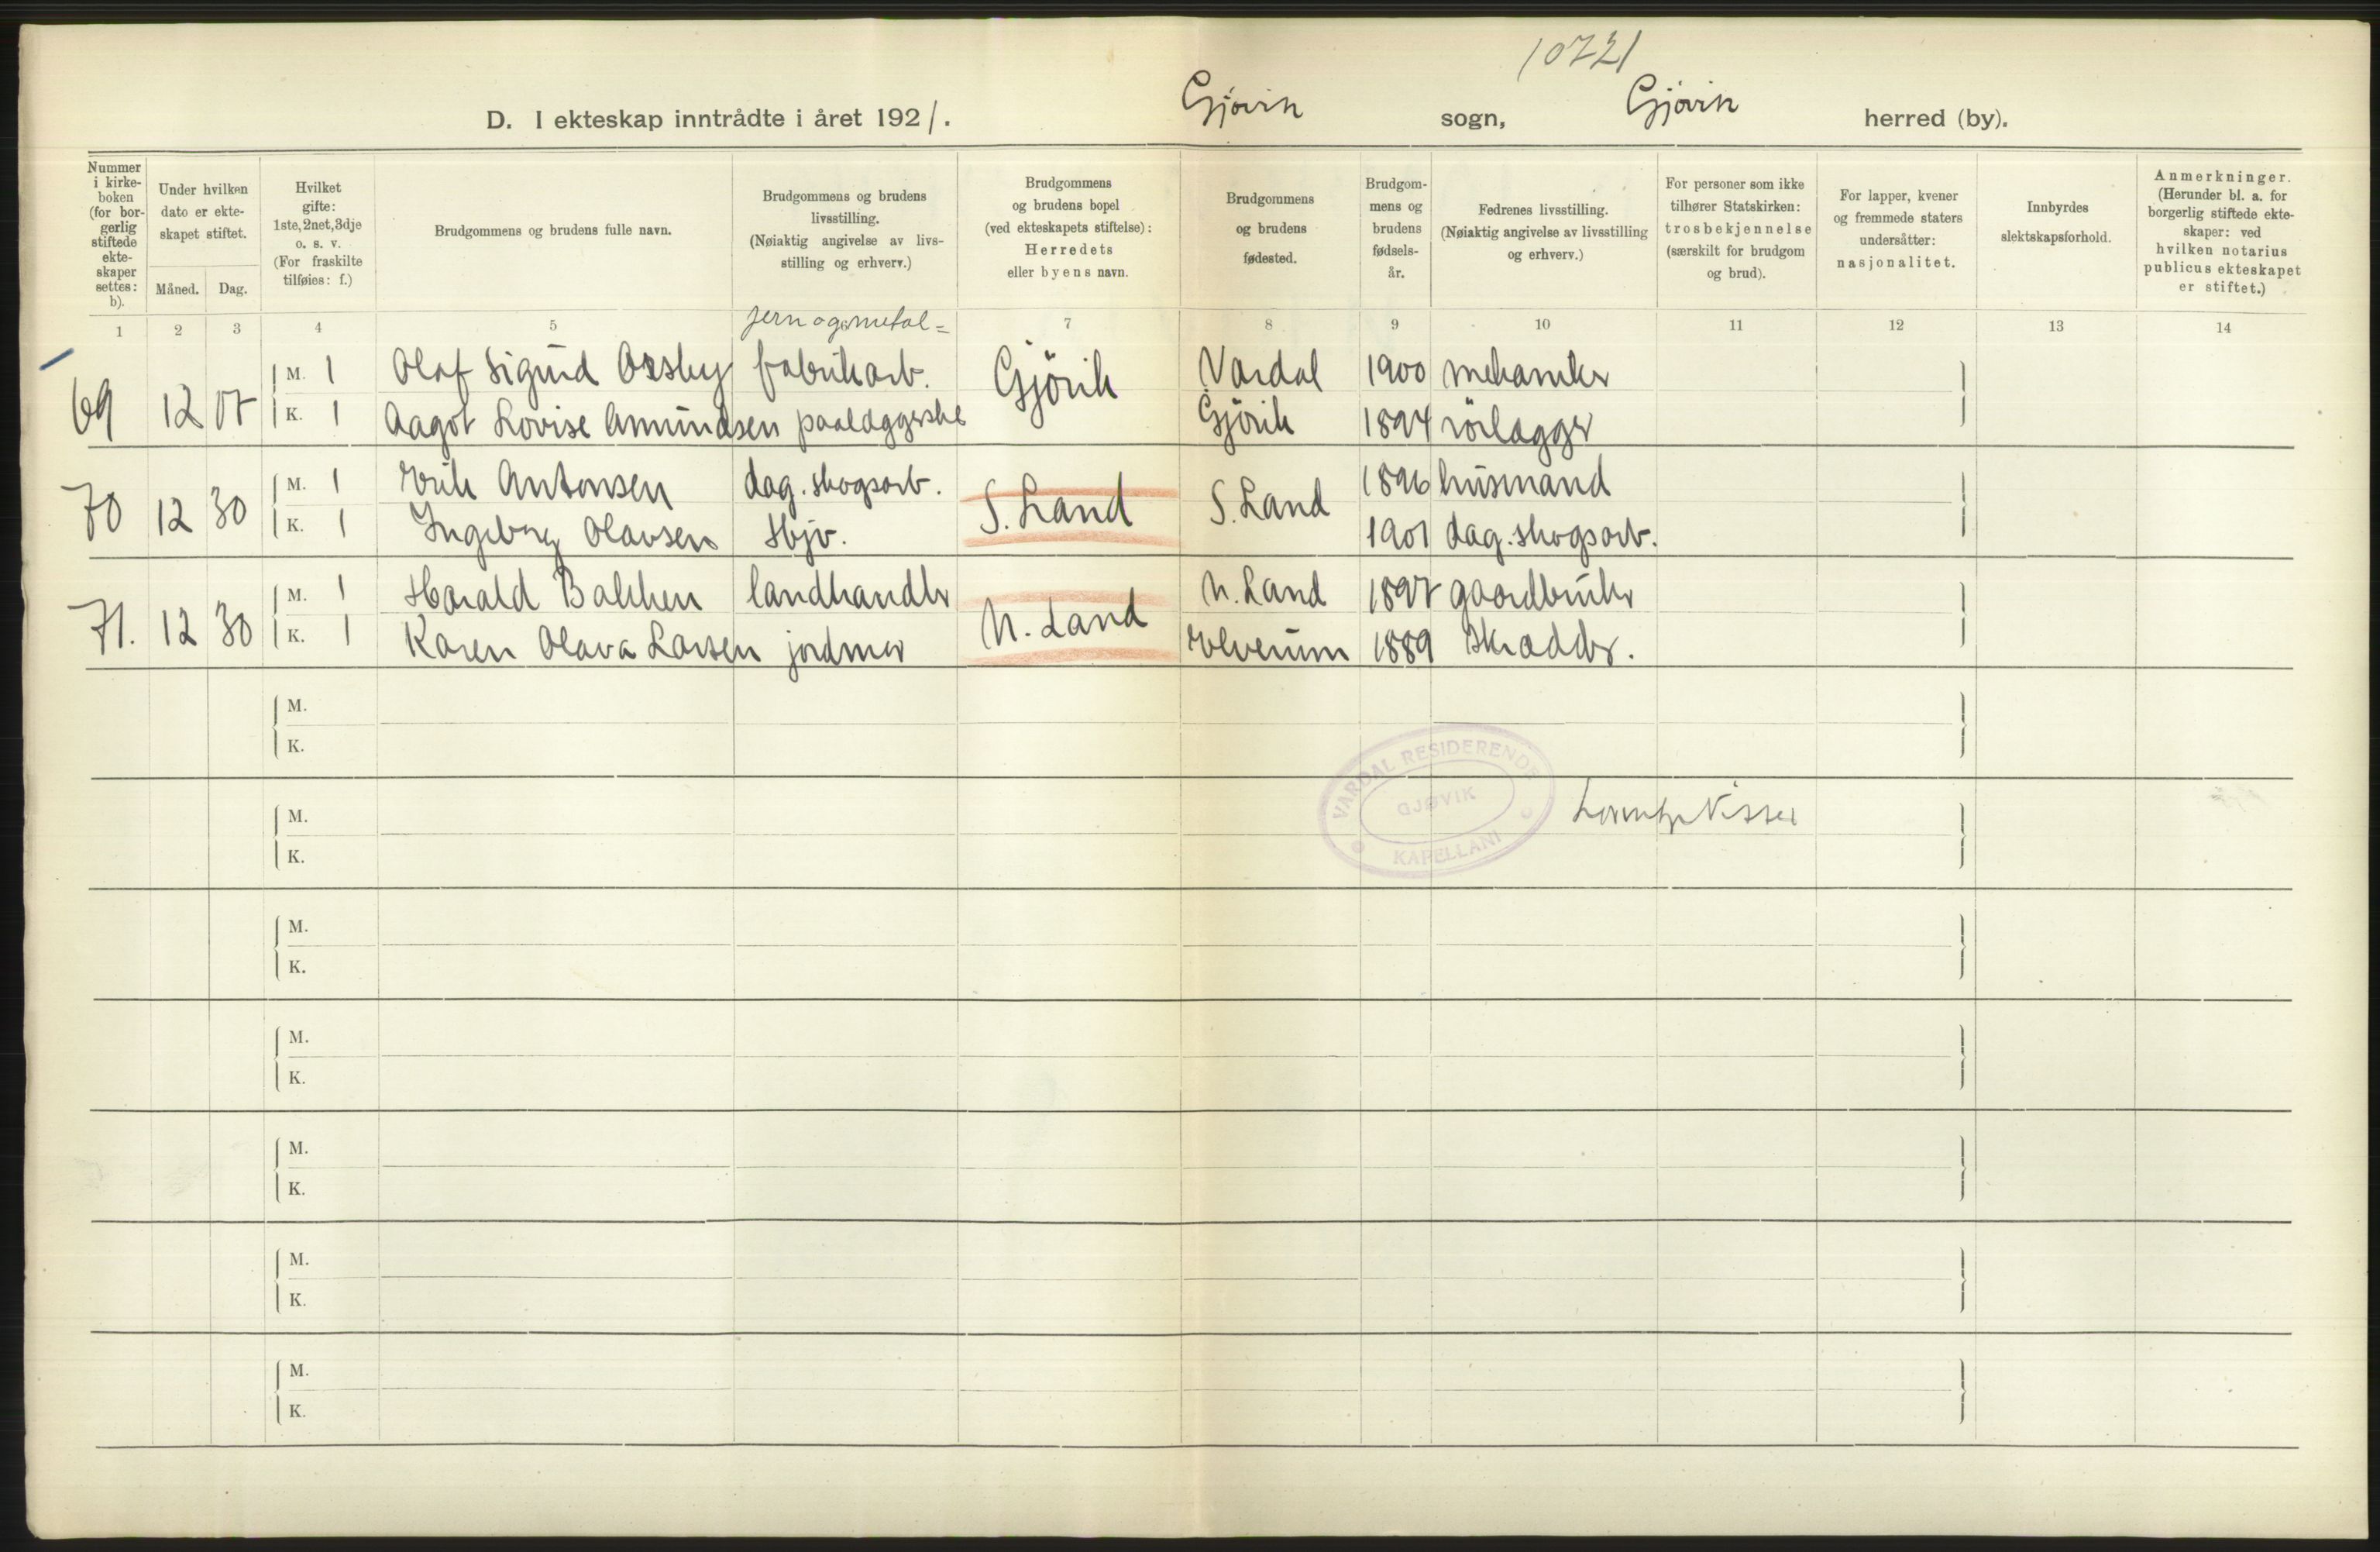 10721
D. I ekteskap inntrådte i året 1921. Gjøvik sogn, Gjøvik herred (by).
Nummer i kirkeboken (for borgerlig stiftede ekteskaper settes: b).
Under hvilken dato er ekteskapet stiftet.
Måned. Dag.
Hvilket gifte: 1ste, 2net, 3dje o. s. v. (For fraskilte tilføies: f.)
Brudgommens og brudens fulle navn.
Brudgommens og brudens livsstilling. (Nøiaktig angivelse av livsstilling og erhverv.)
Brudgommens og brudens bopel (ved ekteskapets stiftelse): Herredets eller byens navn.
Brudgommens og brudens fødested.
Brudgommens og brudens fødselsår.
Fedrenes livsstilling. (Nøiaktig angivelse av livsstilling og erhverv.)
For personer som ikke tilhører Statskirken: trosbekjennelse (særskilt for brudgom og brud).
For lapper, kvener og fremmede staters undersåtter: nasjonalitet.
Innbyrdes slektskapsforhold.
Anmerkninger. (Herunder bl. a. for borgerlig stiftede ekteskaper: ved hvilken notarius publicus ekteskapet er stiftet.)
1 2 3 4 5 6 7 8 9 10 11 12 13 14
jern og metal=
69 12 M. 1 Olaf Sigurd fabrikarb. Gjövik Vardal 1900 mekaniker
K. 1 Aagot Lovise Amundsen paalæggerske Gjövik 1894 rörlægger
70 12 30 M. 1 Erik Antonsen dag. skogsarb. S. Land S. Land 1896 husmand
K. 1 Ingeborg Olavsen Hjv. 1901 dag. skogsarb.
71. 12 30 M. 1 Harald Bakken landhandler N. Land N. Land 1897 gaardbruker
K. 1 Karen Olava Larsen jordmor Elverum 1889 Skrædder.
M.
K.
VARDAL RESIDERENDE KAPELLANI
GJØVIK
M.
K.
M.
K.
M.
K.
M.
K.
M.
K.
M.
K.